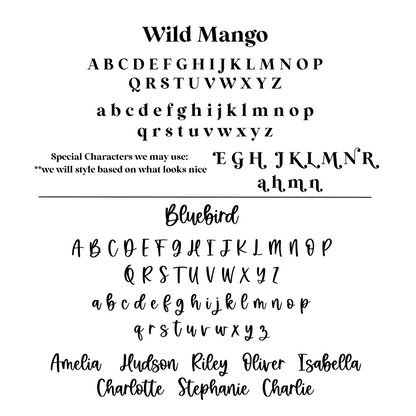 Wild Mango
A B C D E F G H I J K L M N O P
Q R S T U V W X Y Z
a b c d e f g h i j k l m n o p
q r s t u v w x y z
Special Characters we may use:
**we will style based on what looks nice
E G H J K L M N R
a h m n
Bluebird
A B C D E F G H I J K L M N O P
Q R S T U V W X Y Z
a b c d e f g h i j k l m n o p
q r s t u v w x y z
Amelia Hudson Riley Oliver Isabella
Charlotte Stephanie Charlie